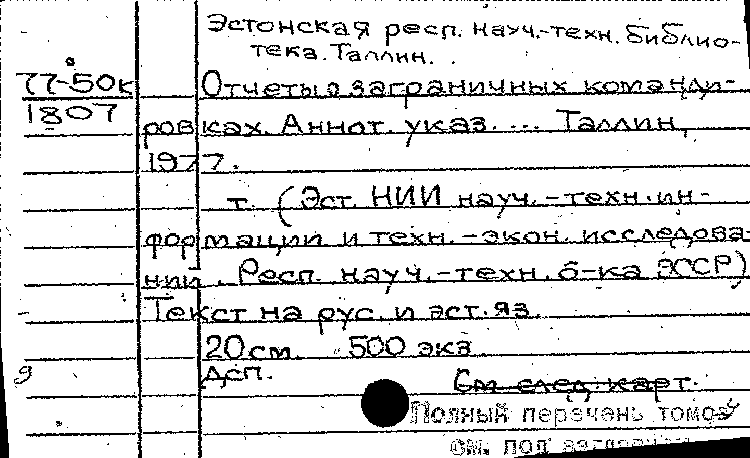 Эстонская респ. науч.-техн. библио-
тека. Таллин.
77-50к
1807
Отчеты о заграничных команди-
ровках. Аннот. указ. ... Таллин,
1977.
т. (Эст. НИИ науч.-техн. ин-
формации и техн.-экон. исследова-
нии. Респ. науч.-техн. б-ка ЭССР)
Текст на рус. и эст. яз.
20 см. 500 экз.
ДСП.
См след карт.
Полный перечень томов
см. под